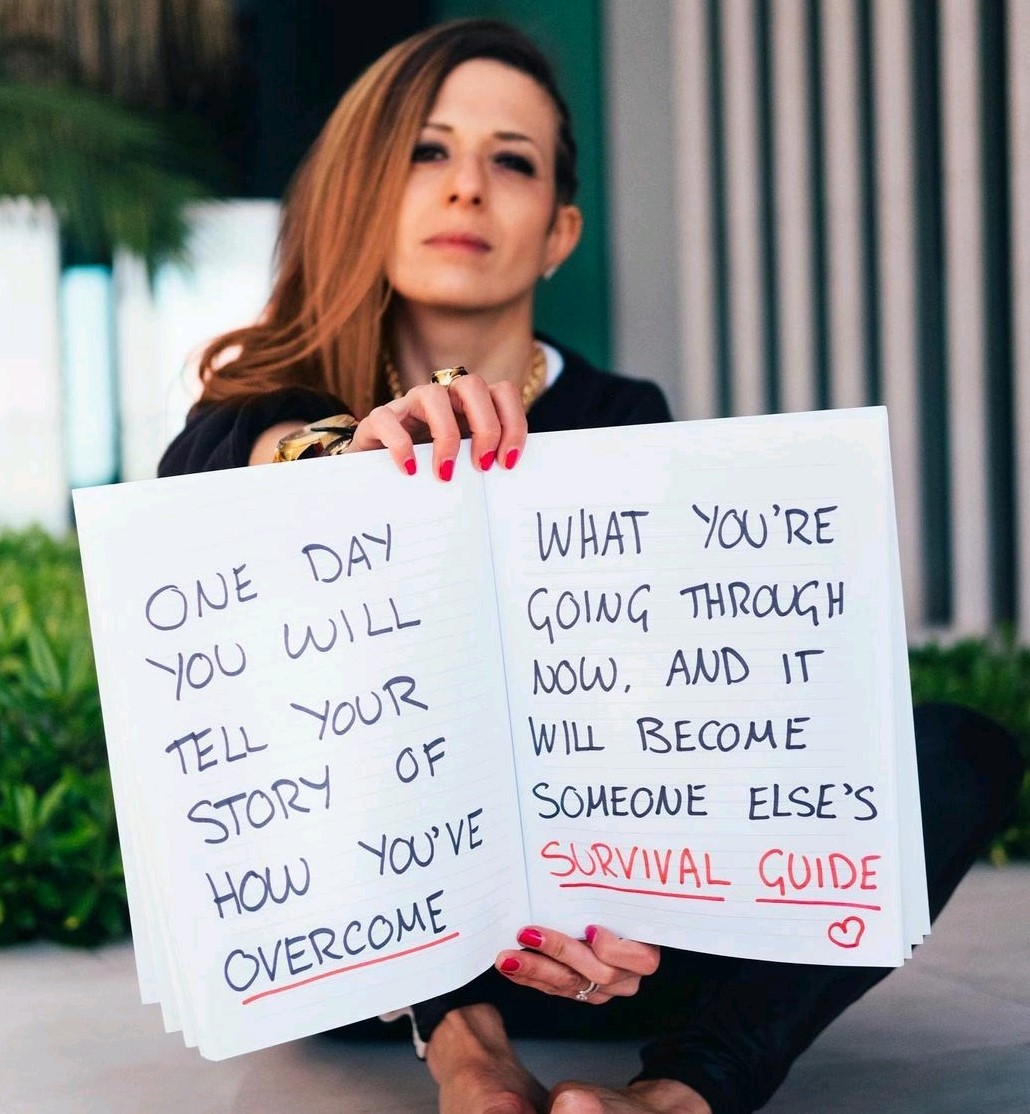 ONE DAY
YOU WILL
TELL YOUR
STORY OF
HOW YOU'VE
OVERCOME
WHAT YOU'RE
GOING THROUGH
NOW, AND IT
WILL BECOME
SOMEONE ELSE'S
SURVIVAL GUIDE